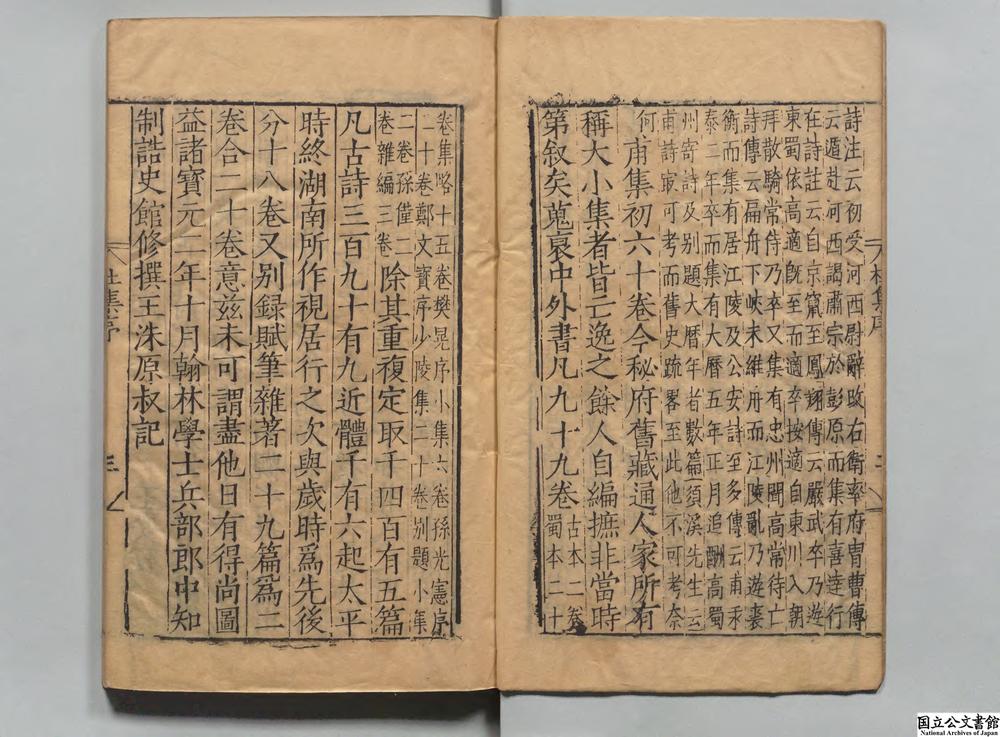 詩注云初受河西尉辭改右衛率府冑曹傳
云遁赴河西謁肅宗於彭原而集有喜達行
在詩註云自京竄至鳳翔傳云嚴武卒乃遊
東蜀依高適旣至而適卒按適自東川入朝
拜散騎常侍乃卒又集有忠州聞高常侍亡
詩傳云扁舟下峽未維舟而江陵亂乃遊襄
衡而集有居江陵及公安詩至多傳云甫永
泰二年卒而集有大曆五年正月追酬高蜀
州寄詩及别題大曆年者數篇須溪先生云
甫詩㝡可考而舊史疏畧至此他不可考奈
何
甫集初六十卷今秘府舊藏通人家所有
稱大小集者皆亡逸之餘人自編摭非當時
第叙矣蒐裒中外書凡九十九卷
古本二卷
蜀本二十
杜集序
二
卷集略十五卷樊晃序小集六卷孫光憲序
二十卷鄭文寶序少陵集二十卷别題小集
二卷孫僅二
卷雜編三卷
除其重複定取千四百有五篇
凡古詩三百九十有九近體千有六起太平
時終湖南所作視居行之次與歲時爲先後
分十八卷又别録賦筆雜著二十九篇爲二
卷合二十卷意兹未可謂盡他日有得尚圖
益諸寶元二年十月翰林學士兵部郎中知
制誥史館修撰王洙原叔記
杜集序
三
国立公文書館
National Archives of Japan